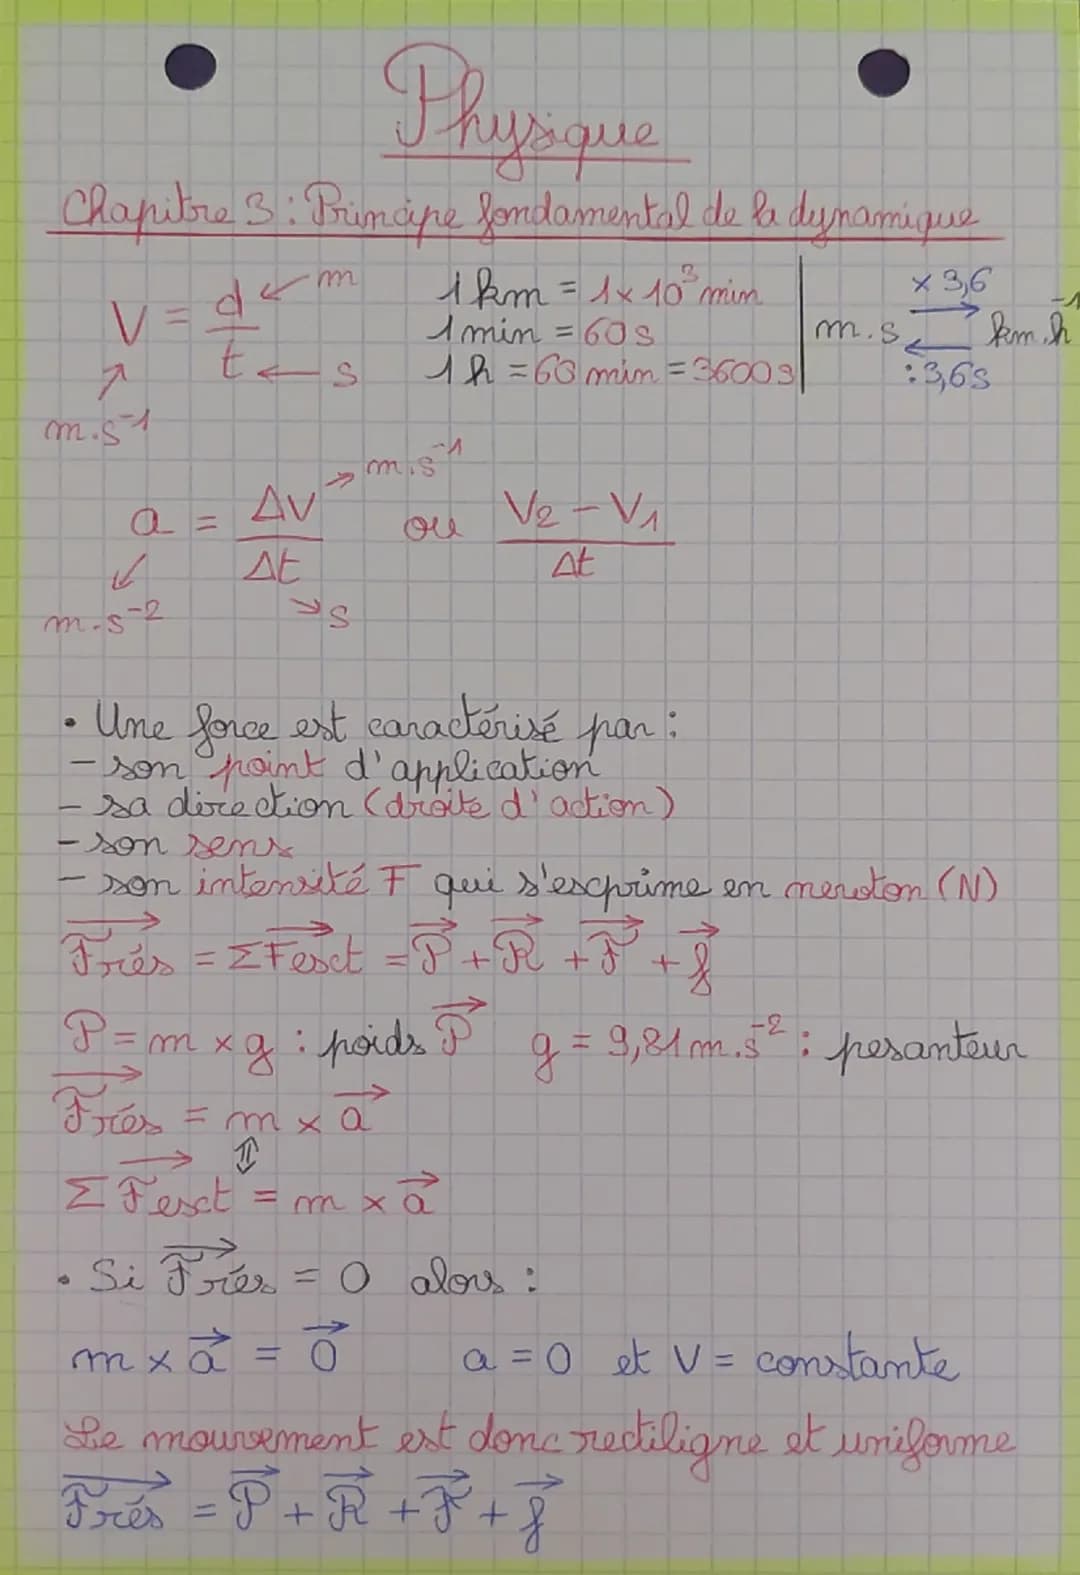 Physique
Chapitre 3 : Principe fondamental de la dynamique
V = d/t
m
s
m.s⁻¹
1 km = 1 x 10³ min
1 min = 60 s
1 h = 60 min = 3600 s
x 3,6
m.s → km.h⁻¹
←
: 3,6 s
a = ΔV/Δt ou V₂ - V₁/Δt
m.s⁻¹
m.s⁻²
s
• Une force est caractérisé par :
- son point d'application
- sa direction (droite d'action)
- son sens
- son intensité F qui s'exprime en newton (N)
F⃗rés = ΣF⃗ext = P⃗ + R⃗ + F⃗ + f⃗
P = m x g : poids P⃗ g = 9,81 m.s⁻² : pesanteur
F⃗rés = m x a⃗
⇕
Σ F⃗ext = m x a⃗
• Si F⃗rés = 0 alors :
m x a⃗ = 0⃗ a = 0 et V = constante
Le mouvement est donc rectiligne et uniforme
F⃗rés = P⃗ + R⃗ + F⃗ + f⃗